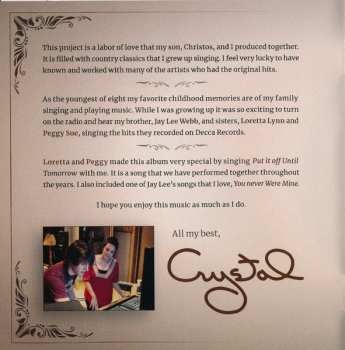 This project is a labor of love that my son, Christos, and I produced together.
It is filled with country classics that I grew up singing. I feel very lucky to have
known and worked with many of the artists who had the original hits.
As the youngest of eight my favorite childhood memories are of my family
singing and playing music. While I was growing up it was so exciting to turn
on the radio and hear my brother, Jay Lee Webb, and sisters, Loretta Lynn and
Peggy Sue, singing the hits they recorded on Decca Records.
Loretta and Peggy made this album very special by singing Put it off Until
Tomorrow with me. It is a song that we have performed together throughout
the years. I also included one of Jay Lee's songs that I love, You never Were Mine.
I hope you enjoy this music as much as I do.
All my best,
Crystal